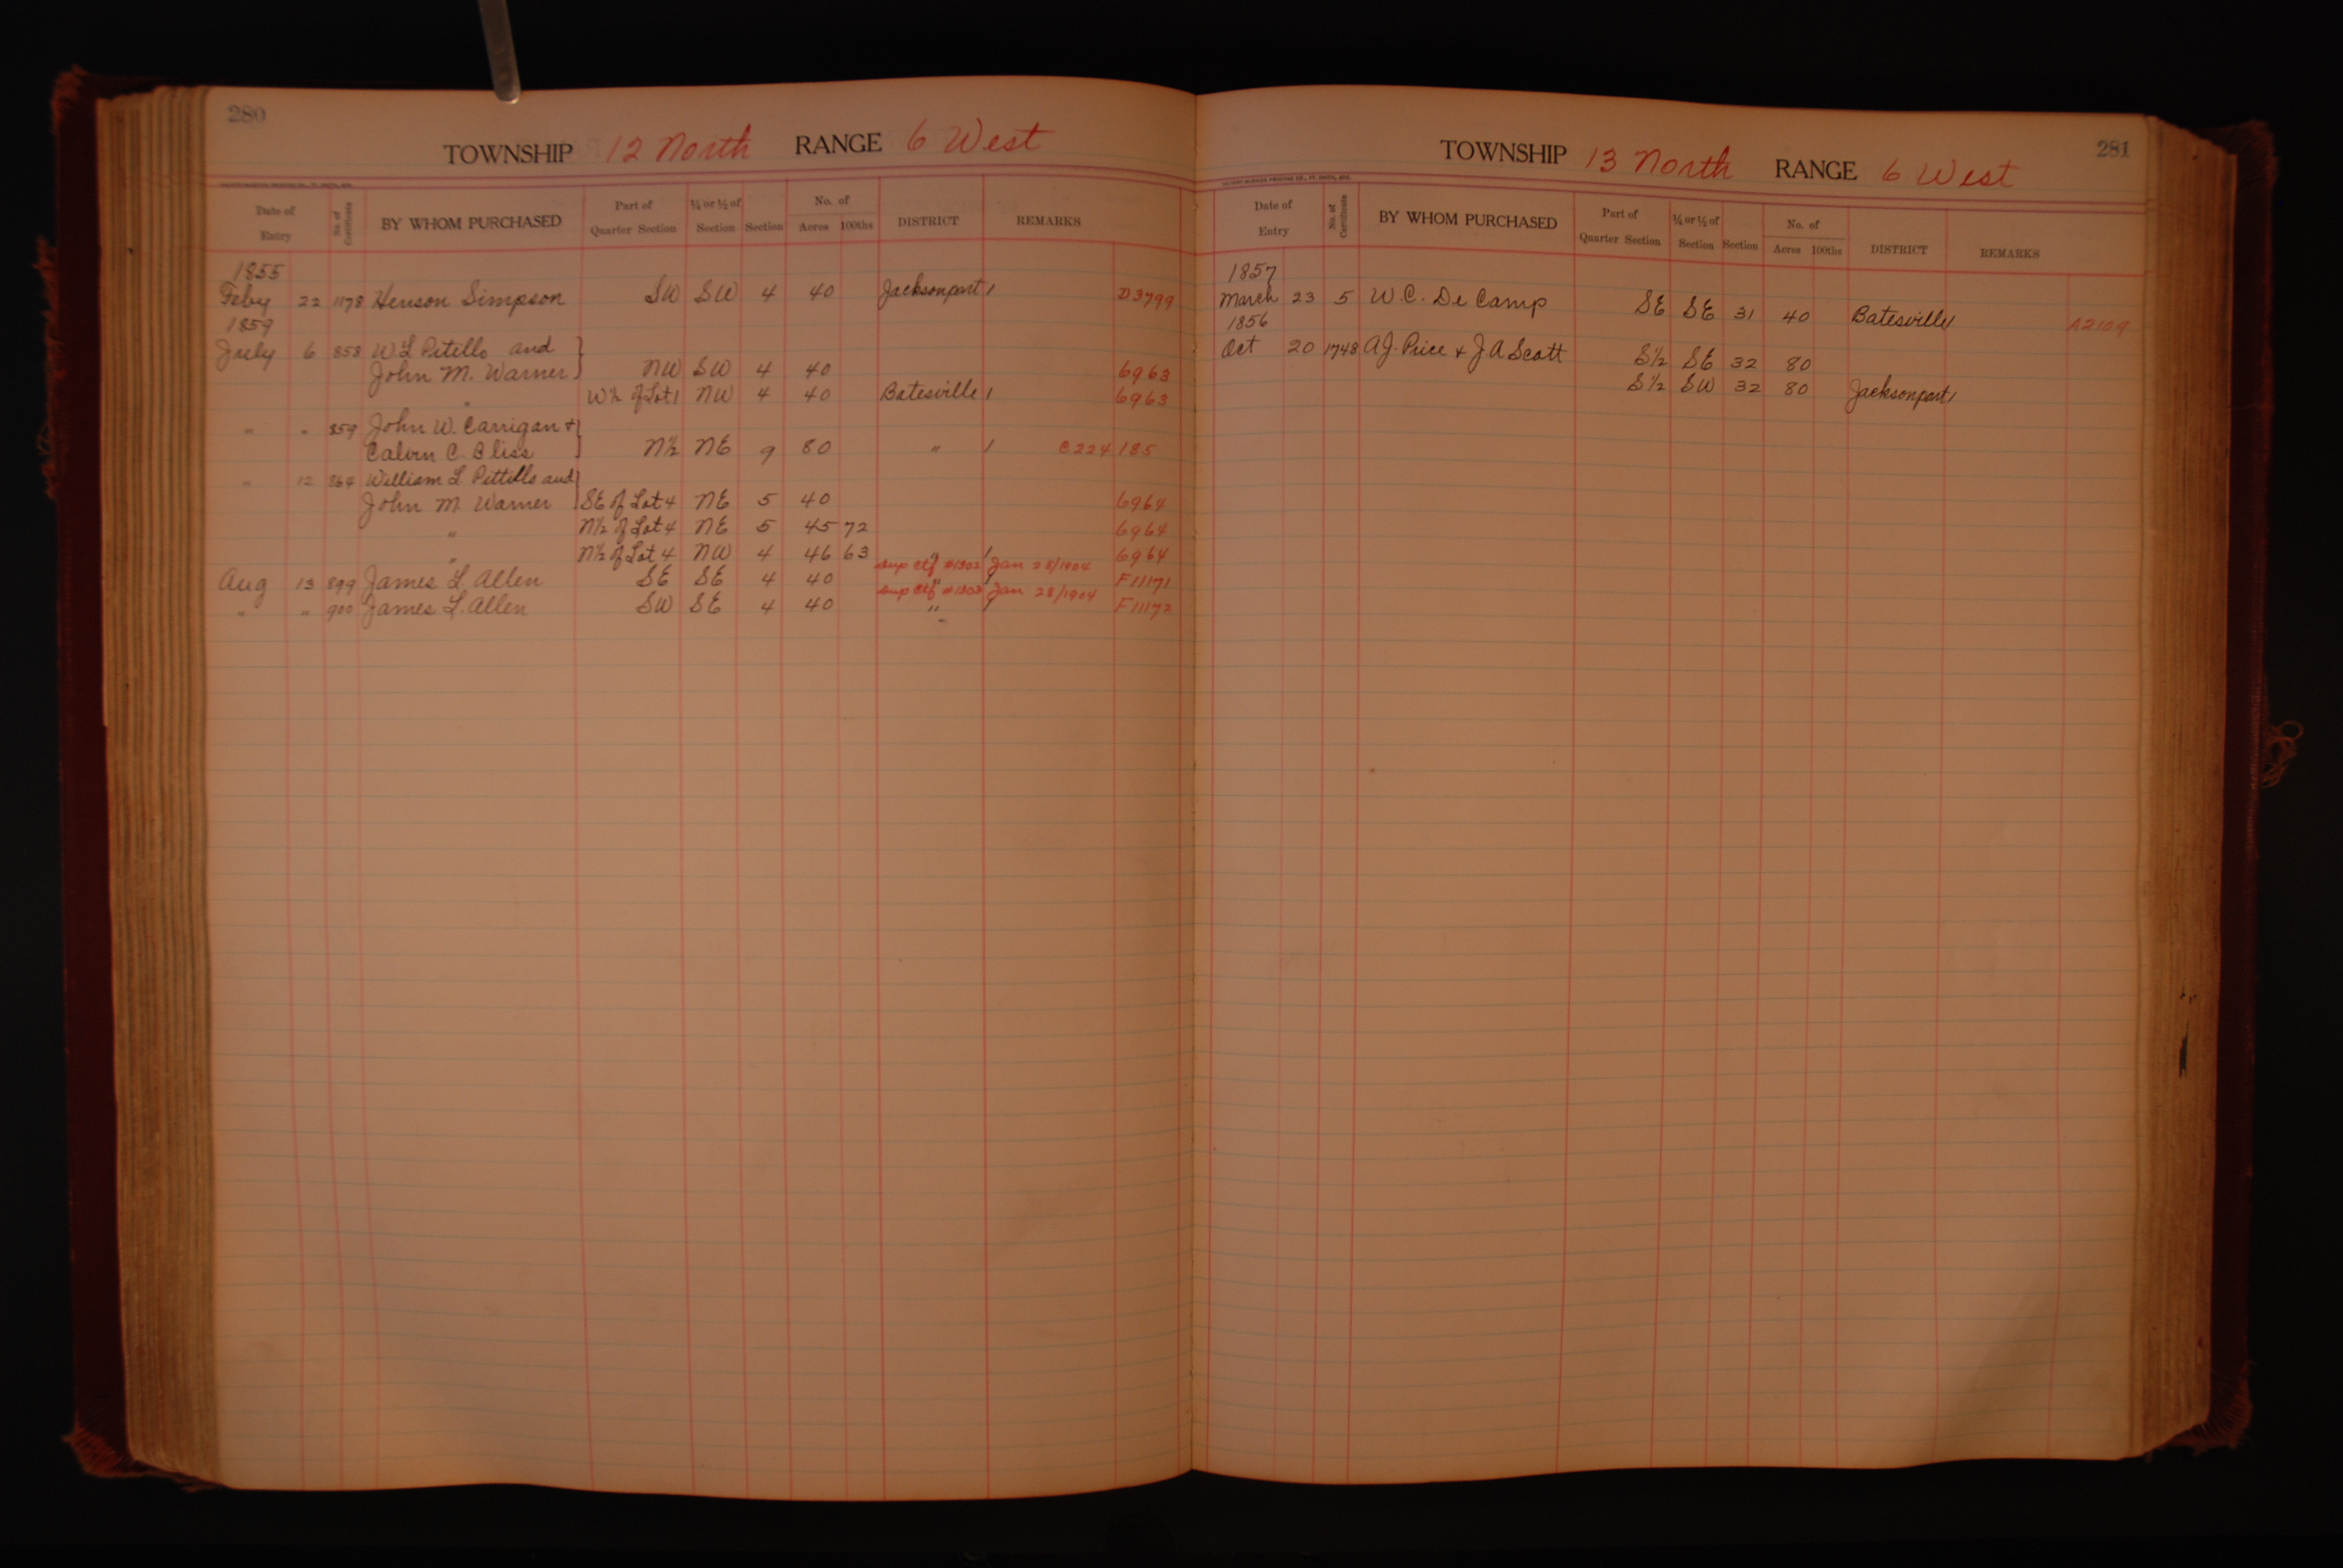 280
TOWNSHIP 12 North RANGE 6 West
Date of Entry No. of Certificate BY WHOM PURCHASED Part of Quarter Section ¼ or ½ of Section Section No. of Acres 100ths DISTRICT REMARKS
1855
Feby 22 1178 Henson Simpson SW SW 4 40 Jacksonport / D3799
1859
July 6 858 W L Pitello and
John M. Warner NW SW 4 40 6963
" W½ of Lot 1 NW 4 40 Batesville / 6963
" " 859 John W. Carrigan +
Calvin C. Bliss N½ NE 9 80 " / C224 185
" 12 864 William L Pittello and
John M Warner SE of Lot 4 NE 5 40 6964
" N½ of Lot 4 NE 5 45 72 6964
" N½ of Lot 4 NW 4 46 63 " / 6964
sup ctf #1302 Jan 28/1904
Aug 13 899 James L. Allen SE SE 4 40 " / F11171
sup ctf #1303 Jan 28/1904
" " 900 James L. Allen SW SE 4 40 " / F11172
281
TOWNSHIP 13 North RANGE 6 West
Date of Entry No. of Certificate BY WHOM PURCHASED Part of Quarter Section ¼ or ½ of Section Section No. of Acres 100ths DISTRICT REMARKS
1857
March 23 5 W. C. De Camp SE SE 31 40 Batesville / A2109
1856
Oct 20 1748 A J. Price + J. A Scott S½ SE 32 80
S½ SW 32 80 Jacksonport /